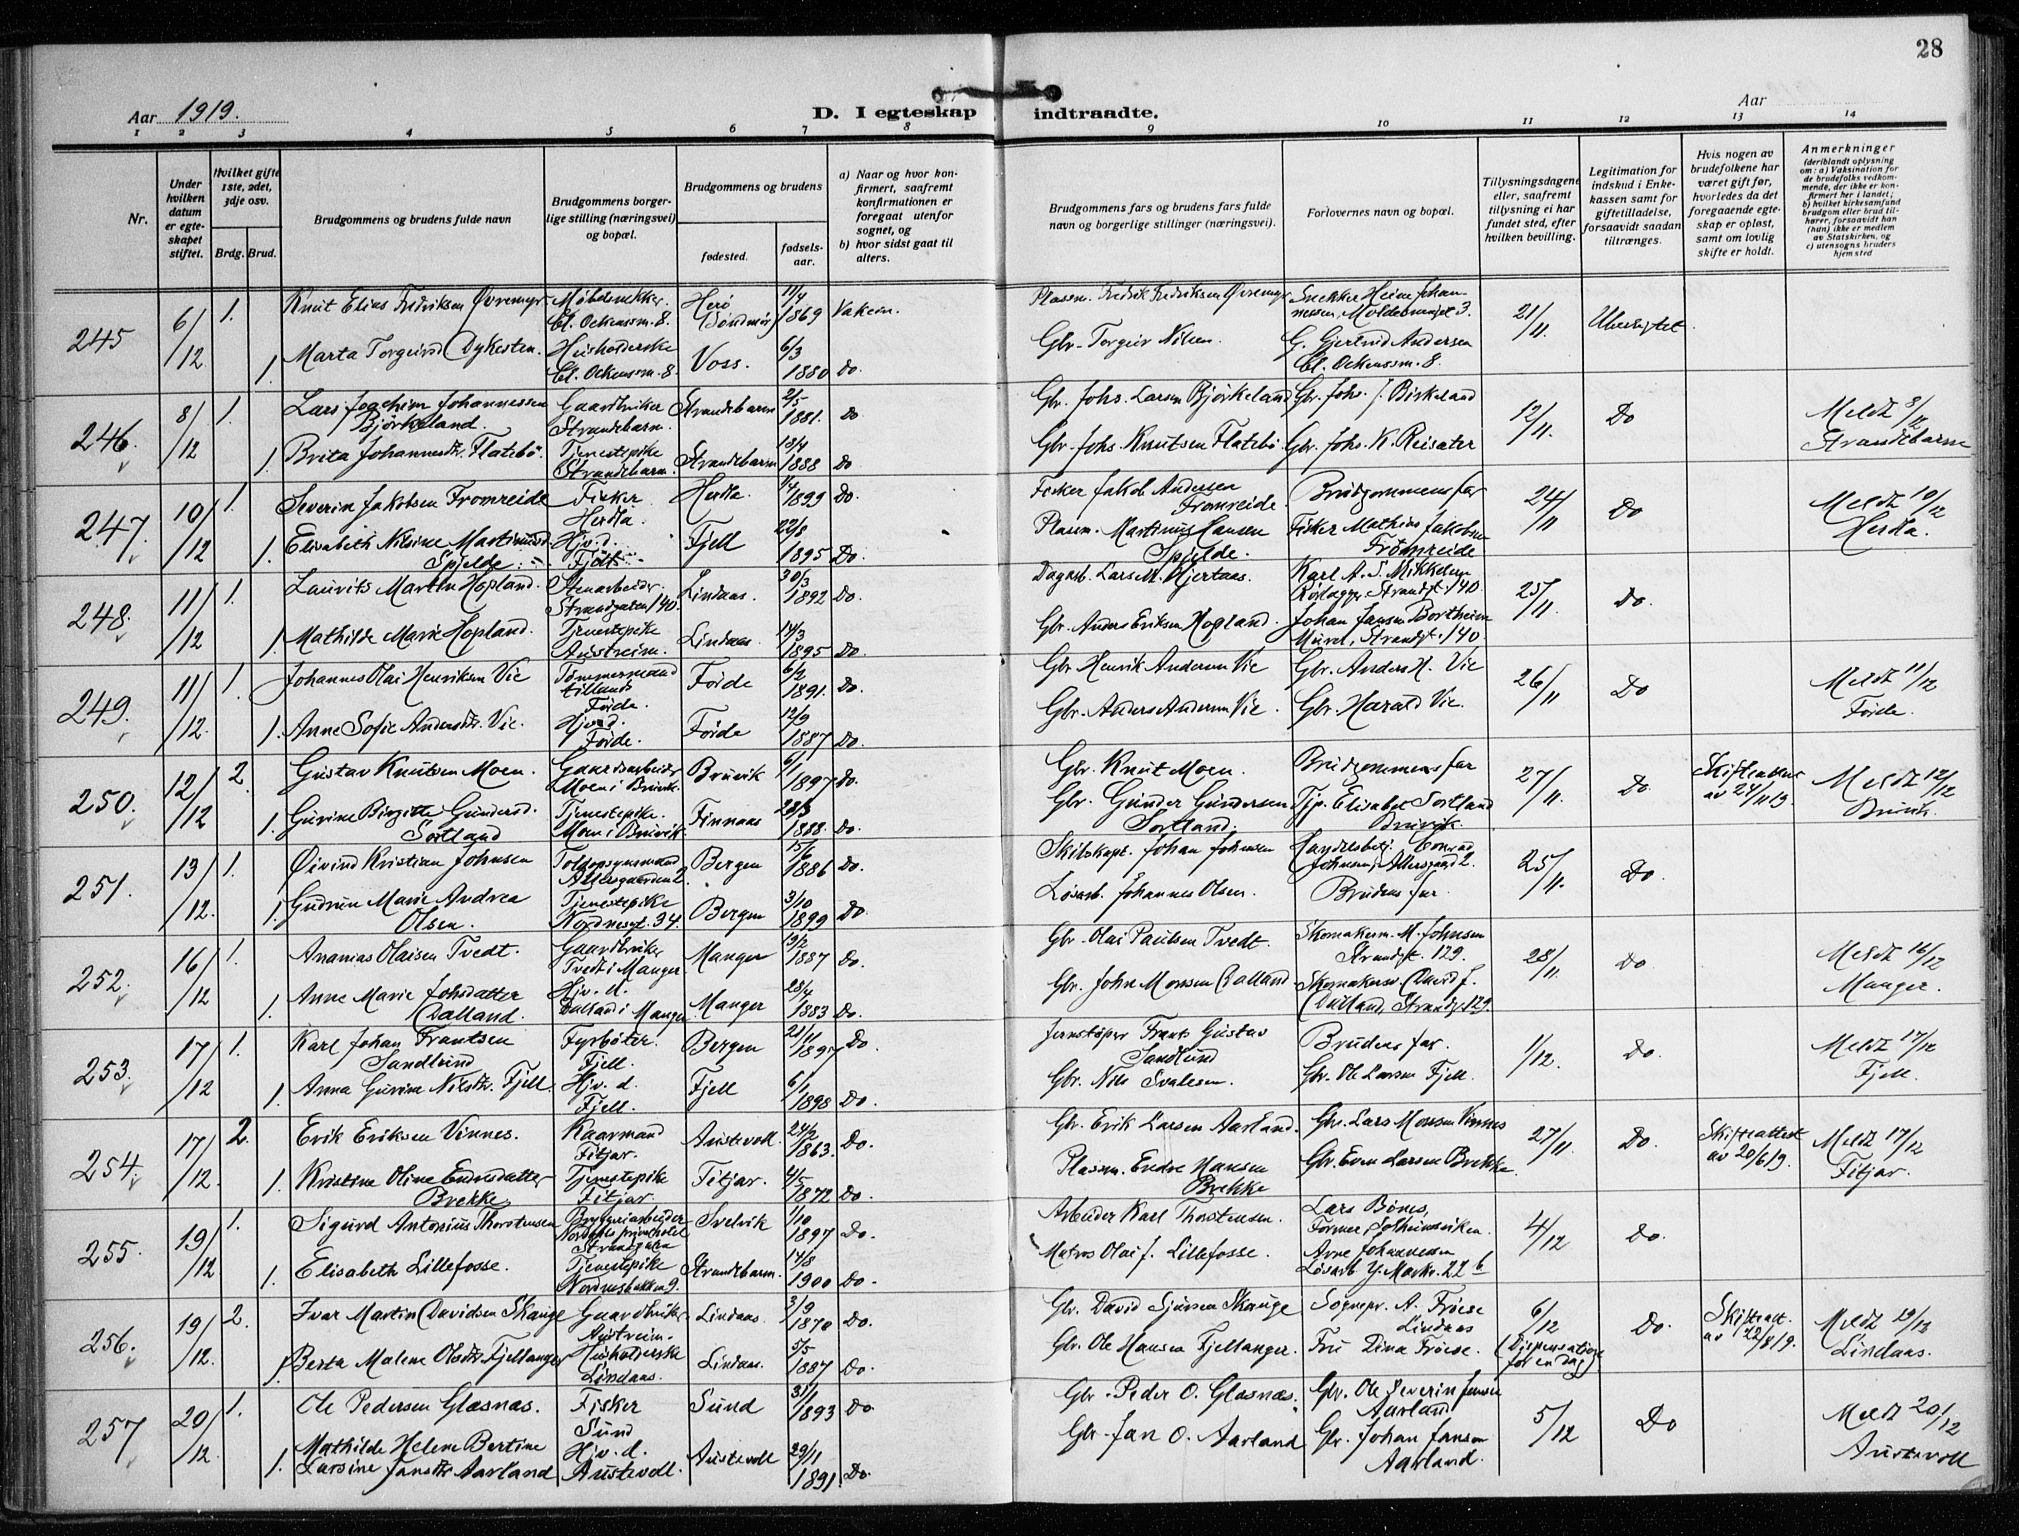 28
Aar 1919.
D. I egteskap indtraadte.
Aar
1 2 3 4 5 6 7 8 9 10 11 12 13 14
Nr.
Under hvilken datum er egteskapet stiftet.
Hvilket gifte 1ste, 2det, 3dje osv.
Brdg. Brud.
Brudgommens og brudens fulde navn
Brudgommens borgerlige stilling (næringsvei) og bopæl.
Brudgommens og brudens
fødested.
fødselsaar.
a) Naar og hvor konfirmert, saafremt konfirmationen er foregaat utenfor sognet, og
b) hvor sidst gaat til alters.
Brudgommens fars og brudens fars fulde navn og borgerlige stillinger (næringsvei).
Forlovernes navn og bopæl.
Tillysningsdagene eller, saafremt tillysning ei har fundet sted, efter hvilken bevilling.
Legitimation for indskud i Enkekassen samt for giftetilladelse, forsaavidt saadan tiltrænges.
Hvis nogen av brudefolkene har været gift før, hvorledes da det foregaaende egteskap er opløst, samt om lovlig skifte er holdt.
Anmerkninger
(deriblandt oplysning om: a) Vaksination for de brudefolks vedkommende, der ikke er konfirmert her i landet; b) hvilket kirkesamfund brudgom eller brud tilhører, forsaavidt han (hun) ikke er medlem av Statskirken, og c) utensogns bruders hjemsted
245 6/12 1. Knut Elias Fredriksen Øvremyr Møbelsnekker Cl. Ockenssm. 8. Herø Søndmør 11/4 1869 Plassm. Fredrik Fredriksen Øvremyr Snekker Heine Johannessen, 21/11
1. Marta Torgeirsd Dykesten. Husholderske Cl. Ockenssm. 8. Voss. 6/3 1880 Do. Gbr. Torgeir Nilsen G. Gjertrud Andersen Cl. Ockenssm. 8.
246. 8/12 1. Lars Joachim Johannessen Bjørkeland. Gaardbruker Strandebarm. Strandebarm 2/5 1881. Do Gbr. Johs. Larsen Bjørkeland Gbr. Johs. J. Birkeland 12/11. Do Meldt 8/12 Strandebarm
1. Brita Johannesdtr. Flatebø. Tjenestepike Strandebarm. Strandebarm 13/4 1888 Do Gbr. Johs. Knutsen Flatebø Gbr. Johs. K. Reisater
247. 10/12 1. Severin Jakobsen Fromreide Fisker Herdla. Herdla. 1899 Do. Fisker Jakob Andersen Fromreide Brudgommens far 24/11 Do Meldt 10/12 Herdla.
1. Elisabeth Nilsine Martinusd. Spjelde. Hjv. d. Fjell Fjell 22/8 1895 Do. Plassm. Martinus Hansen Spjelde. Fisker Mathias Jakobsen Frømreide
248. 11/12 1. Laurits Martin Hopland. Stenarbeider Strandgaten 140. Lindaas. 30/3 1892 Do. Dagarb. Lars M. Hjertaas. Karl A. S. Mikkelsen Strandgt. 140 25/11. Do.
1. Mathilde Marie Hopland. Tjenestepike Austreim. Lindaas. 14/3 1895 Do. Gbr. Anders Eriksen Hopland. Johan Jansen Bortheim Murer, Strandgt. 140.
249. 11/12 1. Johannes Olai Henriksen Vie Tømmermand tillands Førde. Førde 6/2 1891. Do. Gbr. Henrik Andersen Vie Gbr. Anders H. Vie 26/11 Do Meldt 11/12 Førde.
1. Anne Sofie Andersdtr. Vie. Hjv. d. Førde. Førde 12/9 1887 Do. Gbr. Anders Andersen Vie. Gbr. Harald Vie.
250. 12/12 2. Gustav Knutsen Moen. Gaardsarbeider Moen i Bruvik. Bruvik 1897 Do. Gbr. Knut Moen. Brudgommens far 27/11. Do. Skifteattest av 24/11 19. Meldt 12/12 Bruvik.
1. Gurine Birgitte Gundersd. Sortland Tjenestepike. Moen i Bruvik. Finnaas 28/3 1888. Do. Gbr. Gunder Gundersen Sortland. Tjp. Elisabet Sortland Bruvik.
251. 13/12. 1. Øivind Kristian Johnsen Toldopsynsmand Altersgaarden 2. Bergen 15/6 1886 Do. Skibskapt. Johan Johnsen Handelsbetj. Conrad Johnsen, Altersgaard 2. 25/11. Do.
1. Gudrun Marie Andrea Olsen. Tjenestepike Nordnesgt. 34. Bergen 3/10 1899 Do. Løsarb. Johannes Olsen. Brudens far.
252. 16/12 1. Ananias Olaisen Tvedt. Gaardbruker Tvedt i Manger Manger 19/2 1887 Do. Gbr. Olai Paulsen Tvedt. Skomakerm. M. Johnsen Strandgt. 129. 28/11. Do Meldt 16/12 Manger.
1. Anne Marie Johsdatter Dalland. Hjv. d. Dalland i Manger Manger 28/4 1883 Do. Gbr. John Monsen Dalland. Skomakersv. David J. Dalland, Strandg. 129.
253. 17/12 1. Karl Johan Frantsen Sandlund Fyrbøter. Fjell. Bergen 21/11 1897 Do. Jernstøper Frants Gustav Sandlund Brudens far. 1/12. Do. Meldt 17/12 Fjell.
1. Anna Gurine Nilsdtr. Fjell. Hjv. d. Fjell. Fjell 6/1 1898 Do. Gbr. Nils Svalesen. Gbr. Ole Larsen Fjell.
254. 17/12 2. Erik Eriksen Vinnes. Kaarmand Fitjar. Austevoll 24/2 1863. Do. Gbr. Erik Larsen Aarland. Gbr. Lars Monsen Vinnes 27/11. Do. Skifteattest av 20/6 19. Meldt 17/12 Fitjar.
1. Kristine Oline Endresdatter Brekke Tjenestepike Fitjar Fitjar. 4/5 1872 Do. Plassm. Endre Hansen Brekke Gbr. Even Larsen Brekke
255. 19/12 1. Sigurd Antonius Thorstensen Bryggeriarbeider Strandgaten Svelvik 1/10 1897 Do. Arbeider Karl Thorstensen. Lars Bønes, Former, Solheimsviken 4/12 Do.
1. Elisabeth Lillefosse. Tjenestepike Nordnesbakken 9. Strandebarm. 14/8 1900 Do. Matros Olai J. Lillefosse. Arne Johannesen Løsarb. Y. Markv. 22 b
256. 19/12. 2. Ivar Martin Davidsen Skauge Gaardbruker Austreim. Lindaas. 3/9 1870 Do. Gbr. David Sjursen Skauge Sognepr. A. Frøese Lindaas 6/12 (Dispensation for en dag) Do. Skifteatt. av 22/8 19. Meldt 19/12 Lindaas.
1. Berta Malene Olsdtr. Fjellanger Husholderske Lindaas. Lindaas. 5/5 1887 Do. Gbr. Ole Hansen Fjellanger. Fru Dina Frøese.
257 20/12 1. Ole Pedersen Glæsnæs. Fisker Sund Sund 31/1 1893 Do Gbr. Peder O. Glæsnæs. Gbr. Ole Severin Jensen Aarland 5/12 Do Meldt 20/12 Austevoll
1. Mathilde Helene Bertine Larsine Jansdtr. Aarland Hjv. d. Austevoll. Austevoll 29/11 1891. Do. Gbr. Jan O. Aarland Gbr. Johan Jansen Aarland.